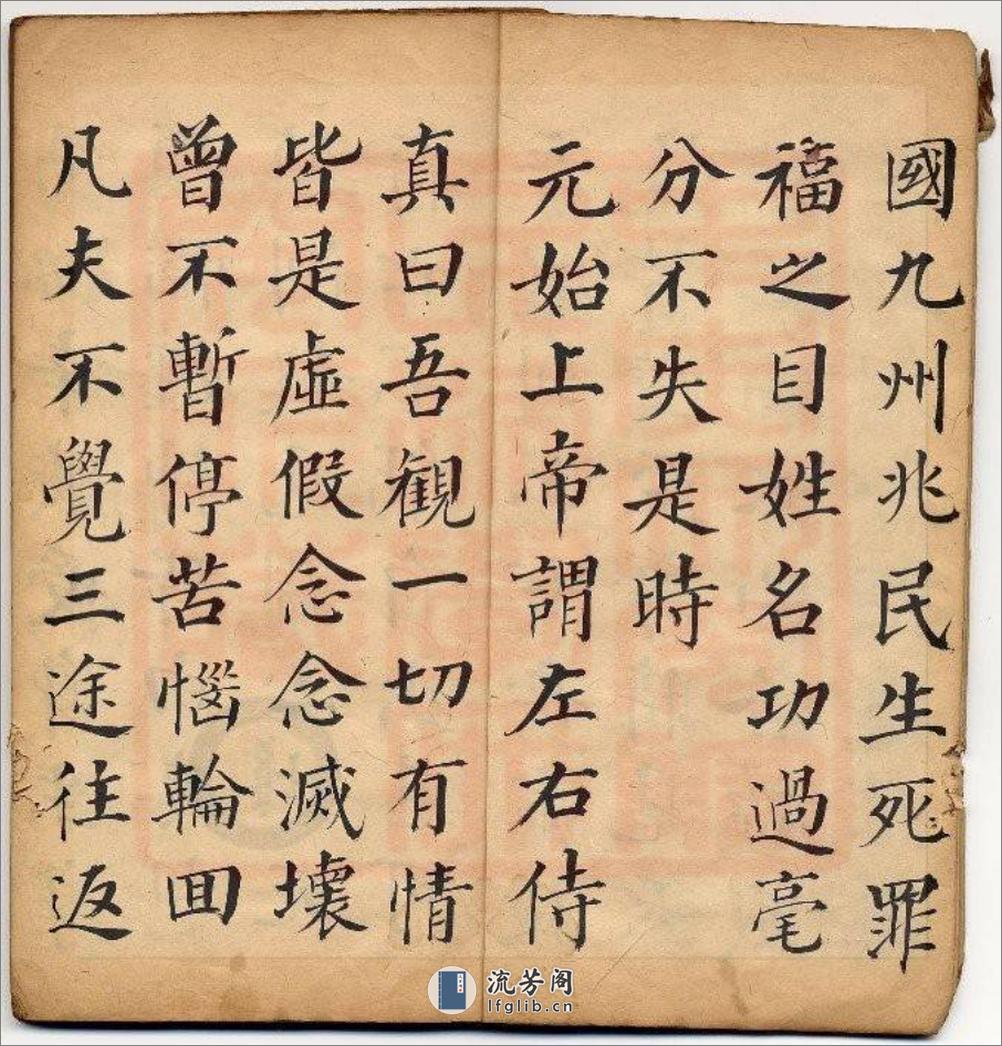 國九州兆民生死罪
福之目姓名功過毫
分不失是時
元始上帝謂左右侍
真曰吾觀一切有情
皆是虛假念念滅壞
曾不暫停苦惱輪回
凡夫不覺三途往返
流芳阁
lfglib.cn